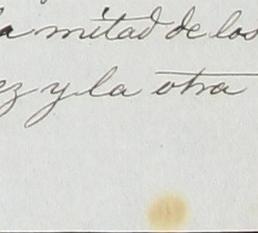 la mitad de los
ez y la otra